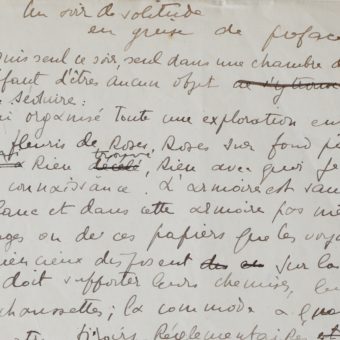 Un soir de solitude
en guise de preface
uis seul ce soir, seul dans une chambre d
faut d'êtres aucun objet
se séduire :
ai organisé toute une exploration en
fleuris de Roses, Roses sur fond
Rien trouvé, Rien avec qui je
connaissance. L'armoire est san
lanc et dans cette armoire pas mê
ges ou de ces papiers que les voya
encieux disposent sur la
doit supporter leurs chemises, leu
chaussettes ; la commode a
tiroirs Réglementaires et